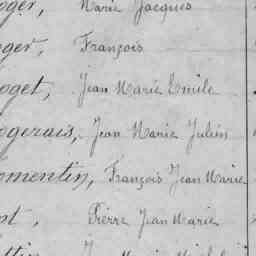 oger, Marie Jacques
ger, François
oget, Jean Marie Emile
ogerais, Jean Marie Julien
omentin, François Jean Marie
Pierre Jean Marie